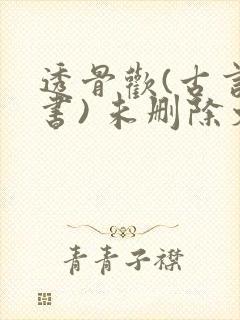 透骨歡(古言
書)未删除
青青子襟